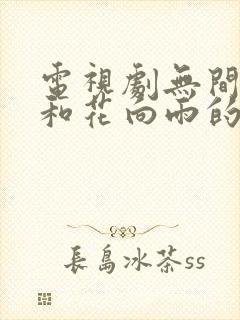 電視劇無間
和花向雨的
長島冰茶ss